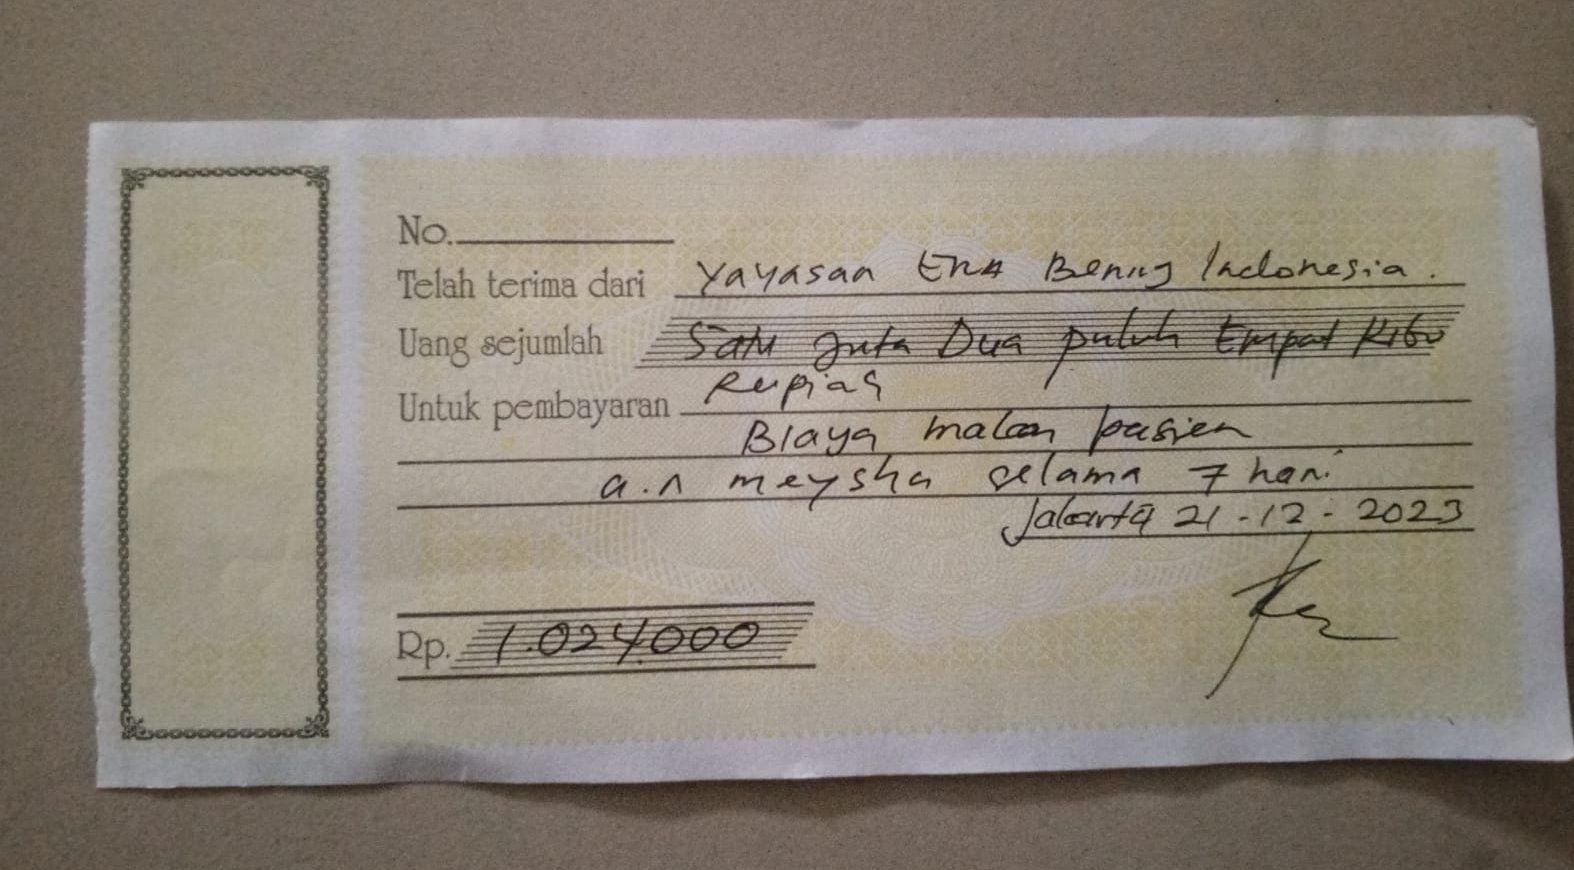 No.
Telah terima dari Yayasan Era Bening Indonesia.
Uang sejumlah Satu Juta Dua puluh Empat Ribu
Rupiah
Untuk pembayaran
Biaya makan pasien
a.n meysha selama 7 hari
Jakarta 21-12-2023
Rp. 1.024.000